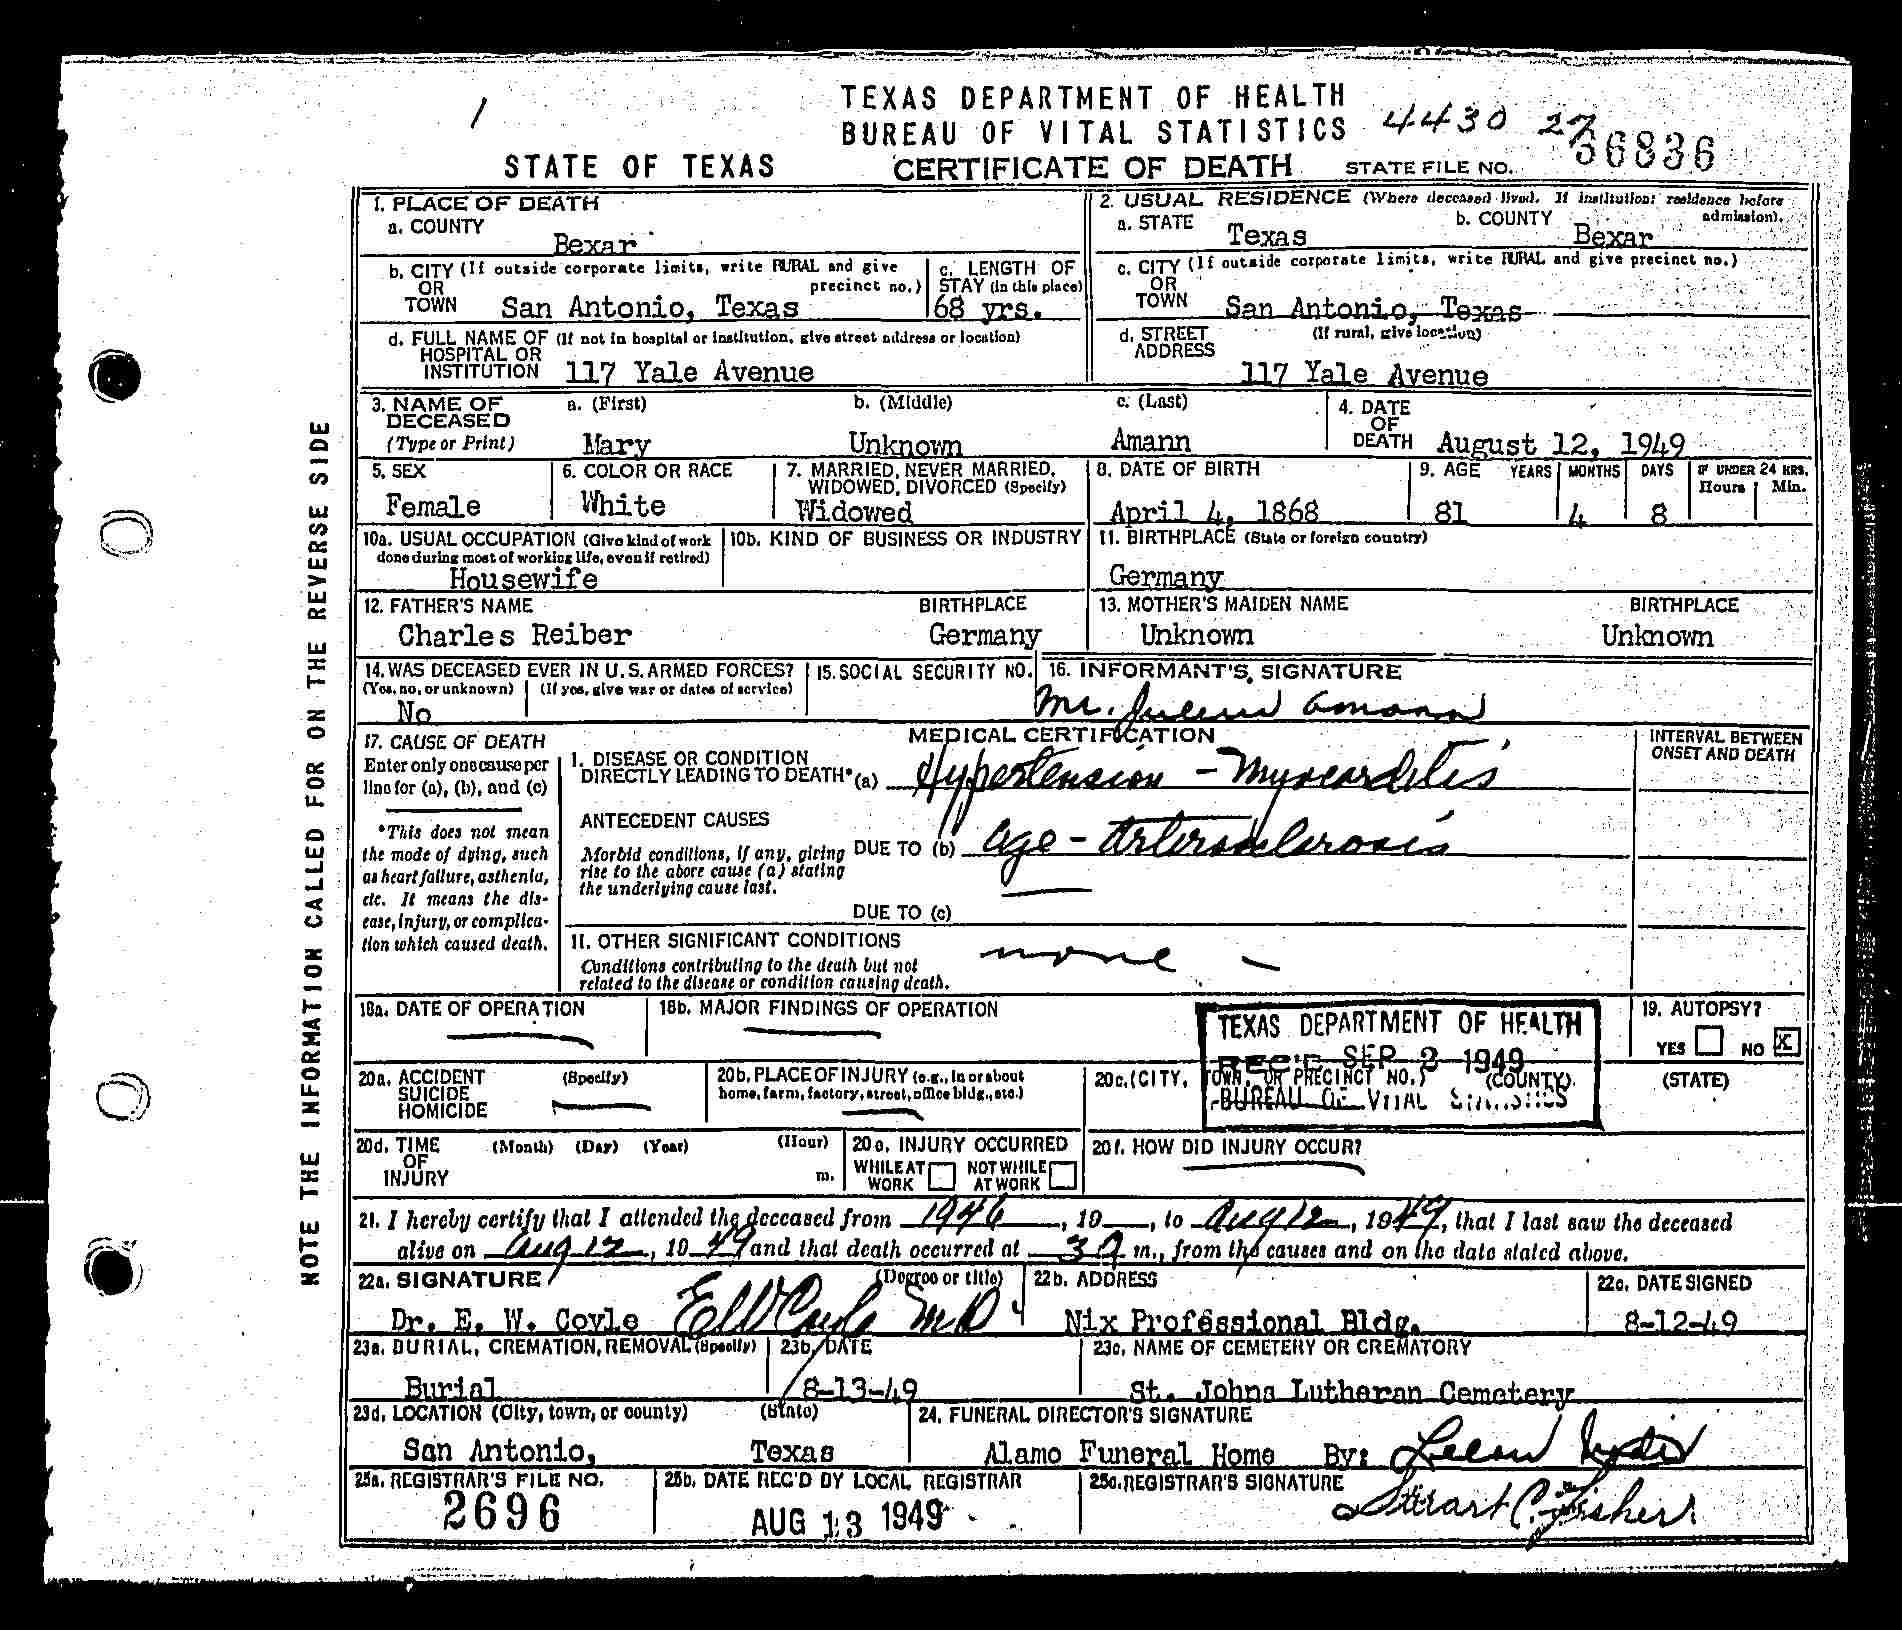 1
TEXAS DEPARTMENT OF HEALTH
BUREAU OF VITAL STATISTICS
4430 27
STATE OF TEXAS
CERTIFICATE OF DEATH
STATE FILE NO. 36836
NOTE THE INFORMATION CALLED FOR ON THE REVERSE SIDE
1. PLACE OF DEATH
a. COUNTY Bexar
2. USUAL RESIDENCE (Where deceased lived. If institution: residence before admission).
a. STATE Texas b. COUNTY Bexar
b. CITY (If outside corporate limits, write RURAL and give precinct no.)
OR
TOWN San Antonio, Texas
c. LENGTH OF
STAY (in this place)
68 yrs.
c. CITY (If outside corporate limits, write RURAL and give precinct no.)
OR
TOWN San Antonio, Texas
d. FULL NAME OF (If not in hospital or institution, give street address or location)
HOSPITAL OR
INSTITUTION 117 Yale Avenue
d. STREET (If rural, give location)
ADDRESS
117 Yale Avenue
3. NAME OF DECEASED (Type or Print)
a. (First) b. (Middle) c. (Last)
Mary Unknown Amann
4. DATE OF DEATH August 12, 1949
5. SEX
Female
6. COLOR OR RACE
White
7. MARRIED, NEVER MARRIED, WIDOWED, DIVORCED (Specify)
Widowed
8. DATE OF BIRTH
April 4, 1868
9. AGE YEARS MONTHS DAYS IF UNDER 24 HRS. Hours Min.
81 4 8
10a. USUAL OCCUPATION (Give kind of work
done during most of working life, even if retired)
Housewife
10b. KIND OF BUSINESS OR INDUSTRY
11. BIRTHPLACE (State or foreign country)
Germany
12. FATHER'S NAME BIRTHPLACE
Charles Reiber Germany
13. MOTHER'S MAIDEN NAME BIRTHPLACE
Unknown Unknown
14. WAS DECEASED EVER IN U.S. ARMED FORCES?
(Yes, no, or unknown) (If yes, give war or dates of service)
No
15. SOCIAL SECURITY NO.
16. INFORMANT'S SIGNATURE
Mr. Julius Amann
17. CAUSE OF DEATH
Enter only one cause per
line for (a), (b), and (c)
*This does not mean
the mode of dying, such
as heart failure, asthenia,
etc. It means the dis-
ease, injury, or complica-
tion which caused death.
MEDICAL CERTIFICATION
INTERVAL BETWEEN
ONSET AND DEATH
I. DISEASE OR CONDITION
DIRECTLY LEADING TO DEATH* (a) Hypertension - Myocarditis
ANTECEDENT CAUSES
Morbid conditions, if any, giving
rise to the above cause (a) stating
the underlying cause last.
DUE TO (b) age - Arteriosclerosis
DUE TO (c)
II. OTHER SIGNIFICANT CONDITIONS
Conditions contributing to the death but not
related to the disease or condition causing death.
none -
18a. DATE OF OPERATION
18b. MAJOR FINDINGS OF OPERATION
19. AUTOPSY?
YES NO X
TEXAS DEPARTMENT OF HEALTH
REC'D SEP 2 1949
BUREAU OF VITAL STATISTICS
20a. ACCIDENT (Specify)
SUICIDE
HOMICIDE
20b. PLACE OF INJURY (e.g., in or about
home, farm, factory, street, office bldg., etc.)
20c. (CITY, TOWN, OR PRECINCT NO.) (COUNTY) (STATE)
20d. TIME (Month) (Day) (Year) (Hour)
OF
INJURY m.
20e. INJURY OCCURRED
WHILE AT WORK NOT WHILE AT WORK
20f. HOW DID INJURY OCCUR?
21. I hereby certify that I attended the deceased from 1946, 19, to Aug 12, 1949, that I last saw the deceased
alive on Aug 12, 1949 and that death occurred at m., from the causes and on the date stated above.
22a. SIGNATURE (Degree or title)
Dr. E. W. Coyle E W Coyle M D
22b. ADDRESS
Nix Professional Bldg.
22c. DATE SIGNED
8-12-49
23a. BURIAL, CREMATION, REMOVAL (Specify)
Burial
23b. DATE
8-13-49
23c. NAME OF CEMETERY OR CREMATORY
St. Johns Lutheran Cemetery
23d. LOCATION (City, town, or county) (State)
San Antonio, Texas
24. FUNERAL DIRECTOR'S SIGNATURE
Alamo Funeral Home By:
25a. REGISTRAR'S FILE NO.
2696
25b. DATE REC'D BY LOCAL REGISTRAR
AUG 13 1949
25c. REGISTRAR'S SIGNATURE
Stuart C. Fisher